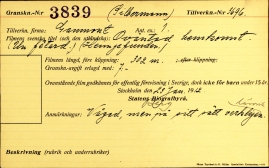 Granskn.-Nr 3839 (Silbermann) Tillverkn.-Nr 3696.
Tillverkn. firma: Gaumont Ant. akter: 1
Filmens svenska titel och den utländska: Oväntad hemkomst
(Un retard) (Slungfunden)
Filmens längd, före klippning: 302 m. , efter klippning:
Gransknings-avgift erlagd med: 7.-
Ovanstående film godkännes för offentlig förevisning i Sverige, dock icke för barn under 15 år.
Stockholm den 23 Jan. 1912
Statens Biografbyrå.
Anmärkningar: Vågad, men på sitt sätt verkligen
Beskrivning (rubrik och underrubriker)